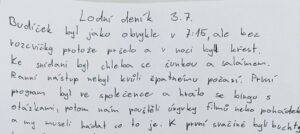 Lodní deník 3.7.
Budíček byl jako obvykle v 7:15, ale bez
rozcvičky protože pršelo a v noci byl křest.
Ke snídani byl chleba se šunkou a salámem.
Ranní nástup nebyl kvůli špatnému počasí. První
program byl ve společence a hrálo se bingo s
otázkami, potom nám pouštěli úryvky filmů nebo pohádek
a my museli hádat co to je. K první svačině byli buchty